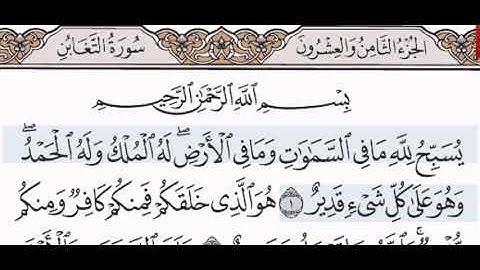 الجزء الثامن والعشرون
سورة التغابن
بِسْمِ اللَّهِ الرَّحْمَٰنِ الرَّحِيمِ
يُسَبِّحُ لِلَّهِ مَا فِي السَّمَٰوَٰتِ وَمَا فِي الْأَرْضِ ۖ لَهُ الْمُلْكُ وَلَهُ الْحَمْدُ ۖ
وَهُوَ عَلَىٰ كُلِّ شَيْءٍ قَدِيرٌ ١ هُوَ الَّذِي خَلَقَكُمْ فَمِنكُمْ كَافِرٌ وَمِنكُم